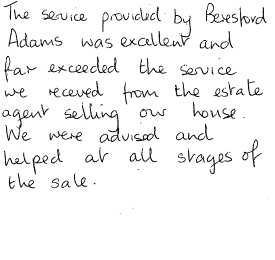 The service provided by Beresford
Adams was excellent and
far exceeded the service
we receved from the estate
agent selling our house.
We were advised and
helped at all stages of
the sale.